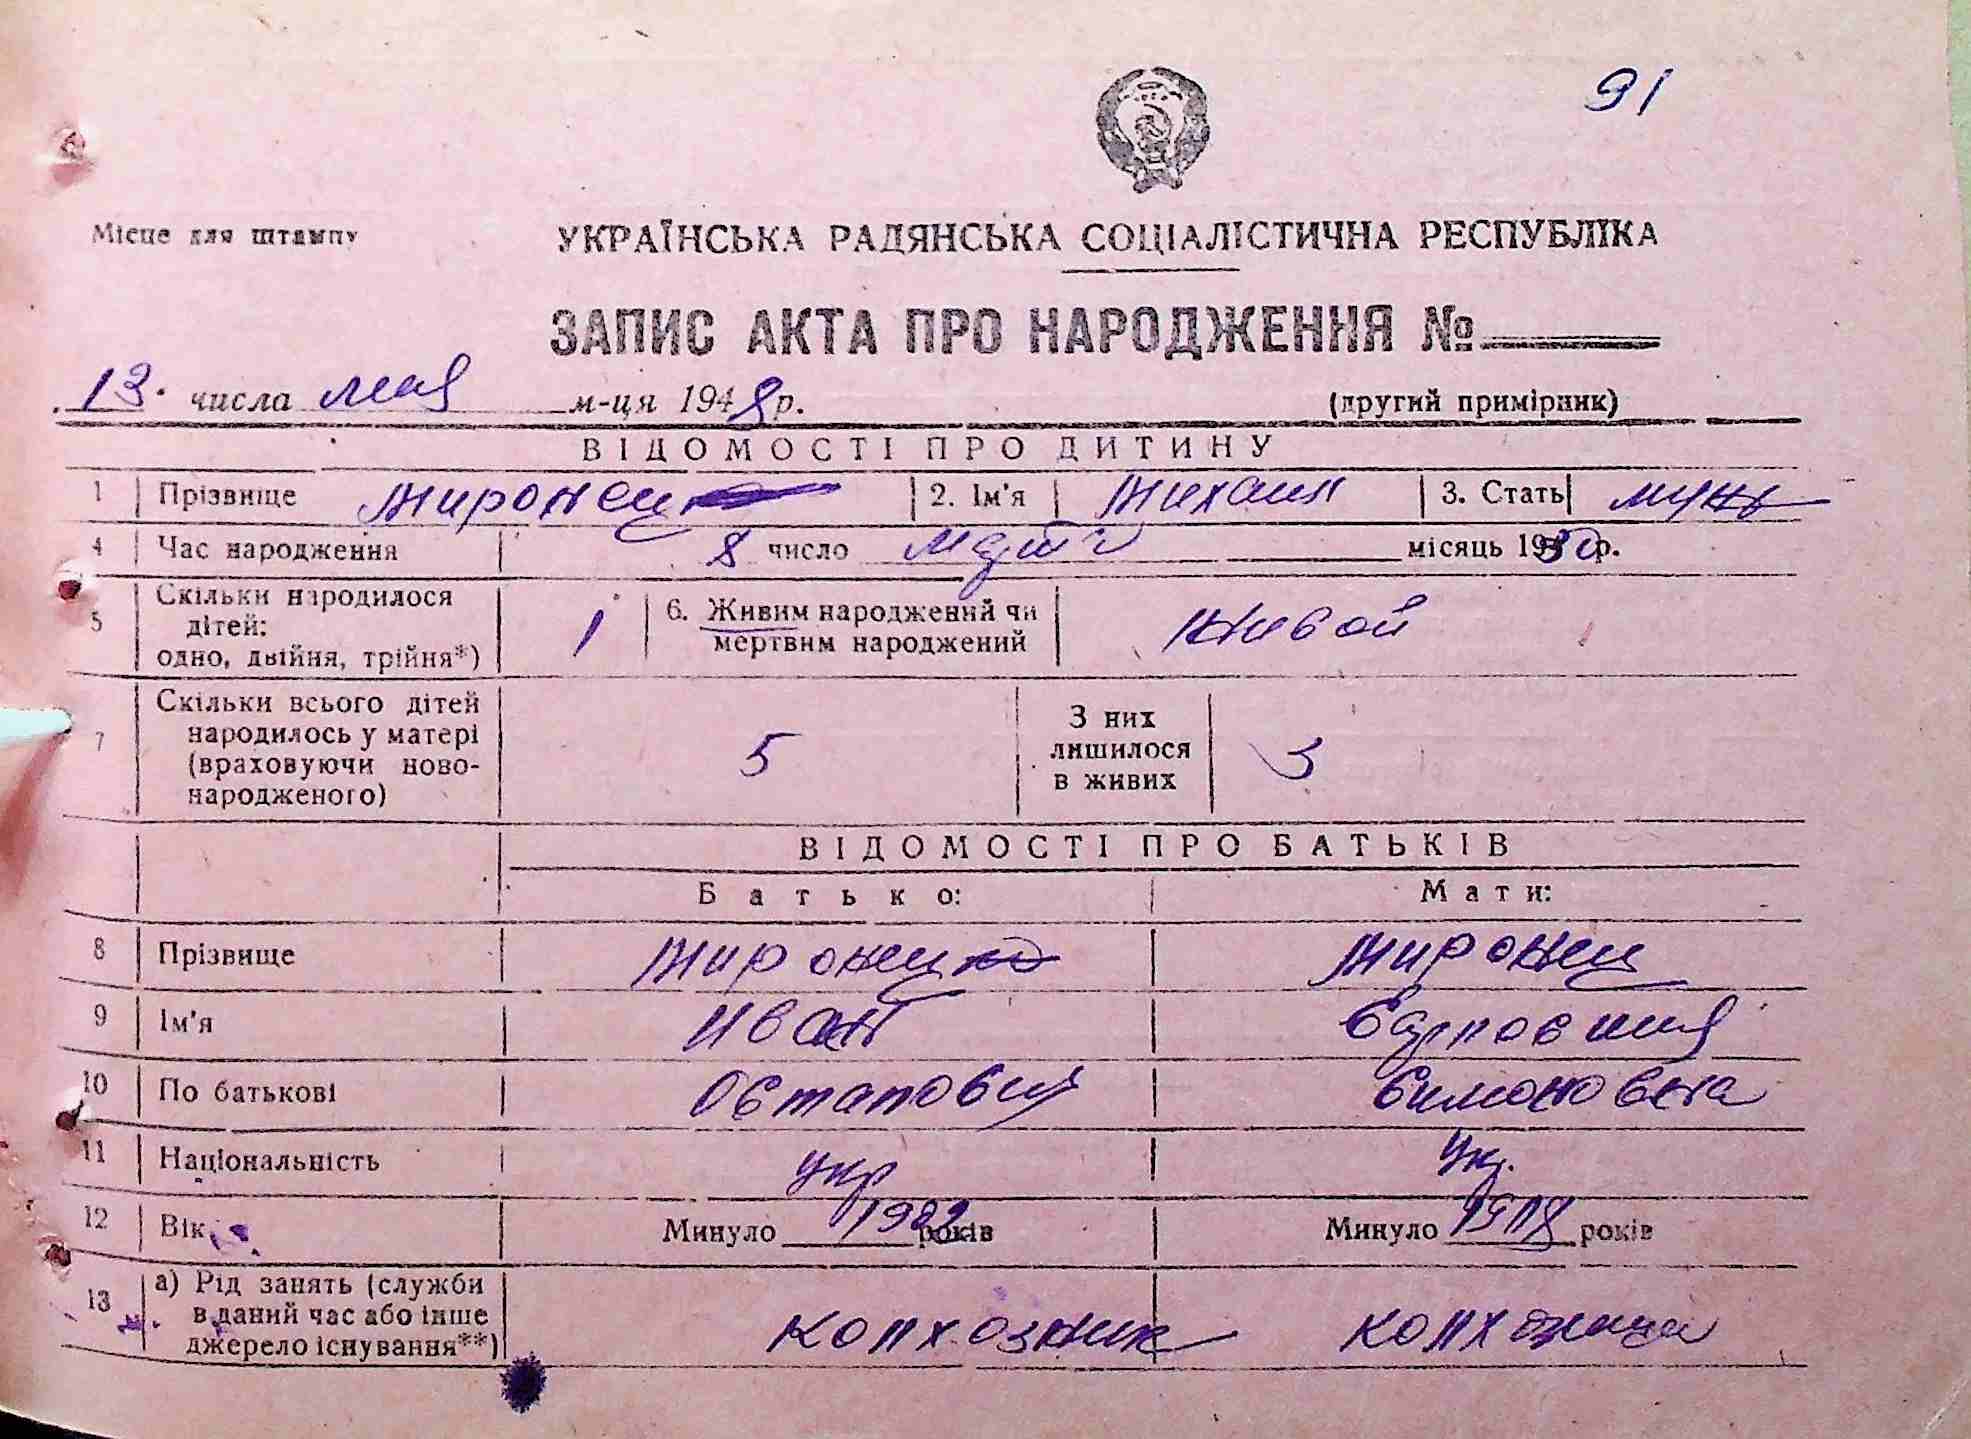 91
Місце для штампу
УКРАЇНСЬКА РАДЯНСЬКА СОЦІАЛІСТИЧНА РЕСПУБЛІКА
ЗАПИС АКТА ПРО НАРОДЖЕННЯ №
13. числа мая м-ця 1949 р. (другий примірник)
ВІДОМОСТІ ПРО ДИТИНУ
1 Прізвище Миронец 2. Ім'я Михаил 3. Стать муж
4 Час народження 8 число март місяць 1930 р.
Скільки народилося
5 дітей: 1 6. Живим народжений чи живой
одно, двійня, трійня*) мертвим народжений
Скільки всього дітей
7 народилось у матері 5 З них лишилося в живих 3
(враховуючи ново-
народженого)
ВІДОМОСТІ ПРО БАТЬКІВ
Батько: Мати:
8 Прізвище Миронец Миронец
9 Ім'я Иван
10 По батькові Остапович Симоновна
11 Національність укр Ук.
12 Вік Минуло 1922 років Минуло 1918 років
13 а) Рід занять (служби
в даний час або інше
джерело існування**) колхозник колхозница